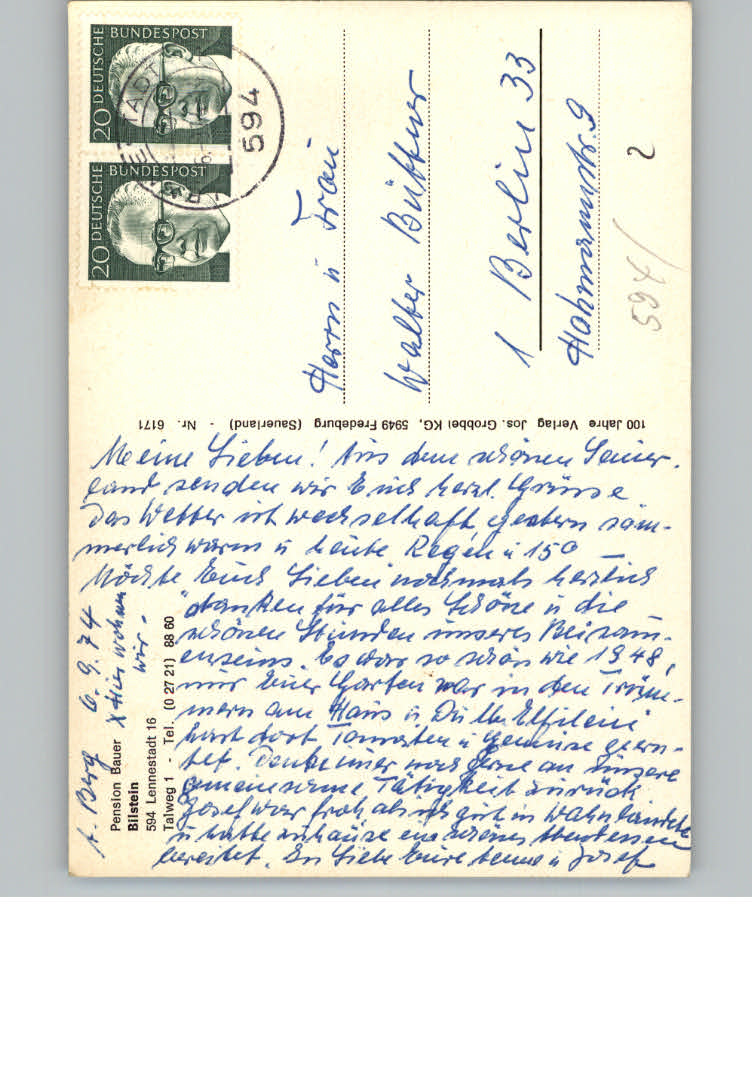 DEUTSCHE BUNDESPOST
20
DEUTSCHE BUNDESPOST
20
594
Herrn u Frau
Walter Büttner
1 Berlin 33
Hohmannstr. 9
2
594/
100 Jahre Verlag Jos. Grobbel KG, 5949 Fredeburg (Sauerland) - Nr. 6171
Meine Lieben! Aus dem schönen Sauer-
land senden wir Euch herzl. Grüsse
Das Wetter ist wechselhaft, gestern söm-
merlich warm u heute Regen u 15°
Möchte Euch Lieben nochmals herzlich
danken für alles Schöne u die
schönen Stunden unseres Beisam-
enseins. Es war so schön wie 1948,
nur Euer Garten war in den Trüm-
mern am Haus u. Du lb.
hast dort Tomaten u gemüse geern-
tet. Denke immer noch gerne an unsere
gemeinsame Tätigkeit zurück
Josef war froh als ich gut in Wahn landete
u hatte zuhause ein schönes Abendessen
bereitet. In Liebe Eure u Josef
Berg 6.9.74
x Hier wohnen
wir -
Pension Bauer
Bilstein
594 Lennestadt 16
Talweg 1 - Tel. (0 27 21) 88 60